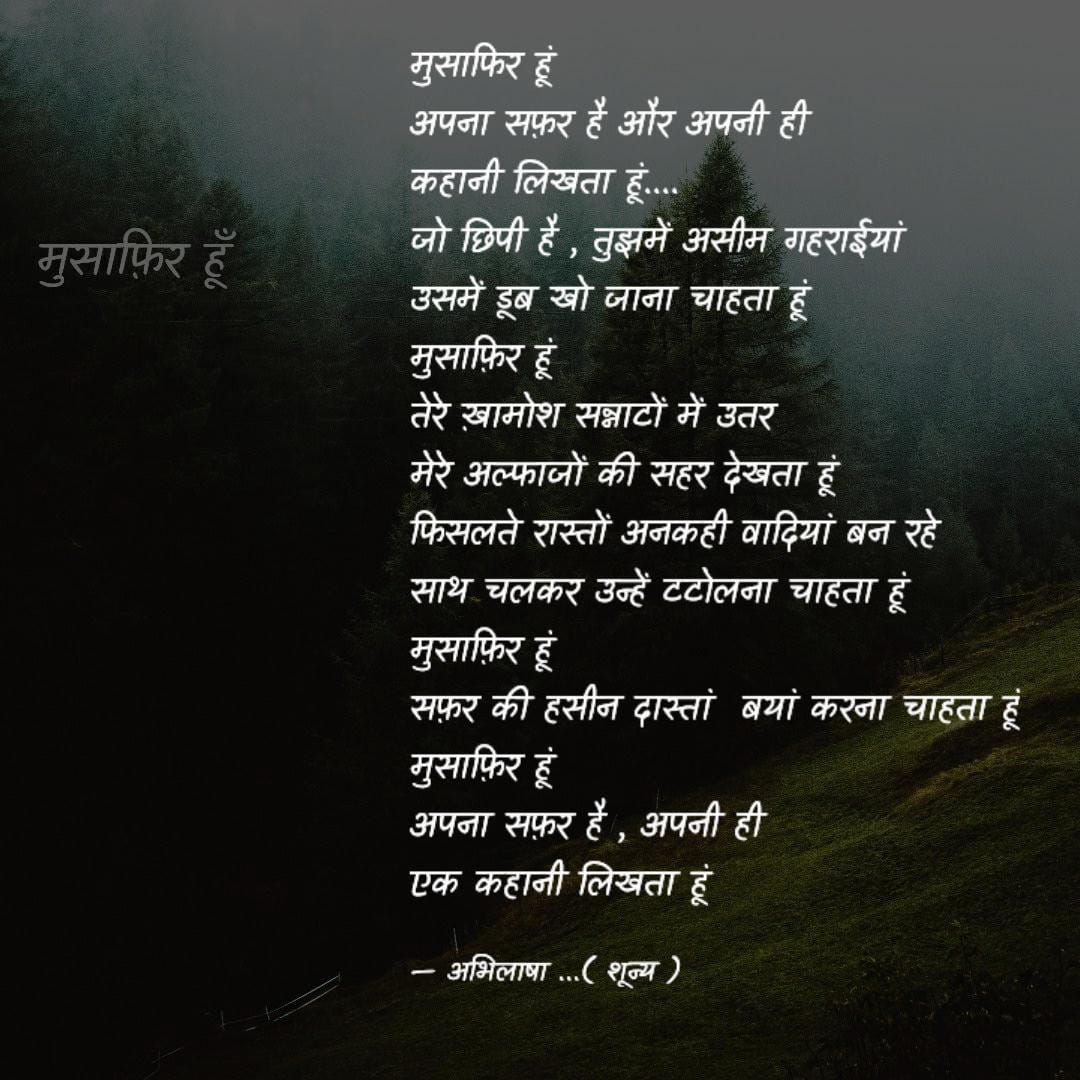 मुसाफिर हूं
अपना सफ़र है और अपनी ही
कहानी लिखता हूं....
जो छिपी है , तुझमें असीम गहराईयां
मुसाफ़िर हूँ
उसमें डूब खो जाना चाहता हूं
मुसाफ़िर हूं
तेरे ख़ामोश सन्नाटों में उतर
मेरे अल्फाजों की सहर देखता हूं
फिसलते रास्तों अनकही वादियां बन रहे
साथ चलकर उन्हें टटोलना चाहता हूं
मुसाफ़िर हूं
सफ़र की हसीन दास्तां  बयां करना चाहता हूं
मुसाफ़िर हूं
अपना सफ़र है , अपनी ही
एक कहानी लिखता हूं
— अभिलाषा ...( शून्य )